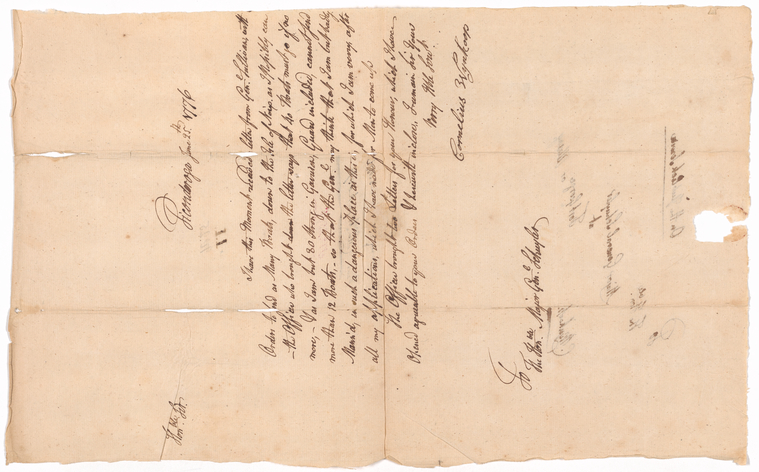 Ticonderoga June 25th 1776
Hon.ble Sir.
I have this Moment received a letter from Gen.l Sullivan, with
Orders to send as Many Boats, down to the Isle of Noix, as I Possibly can
– the Officer who brought down the letter says that 40 Boats must go if no
more, – I as I am but 80 Strong in Garrison, Guard included, cannot send
more than 12 Boats. – so that the Gen.l may think that I am but badly
Mann'd, in such a dangerous Place as this is, for which I am sorry after
all my applications, which I have made for Men to come up
The Officer brought two Letters for your Honour, which I have
Opened agreeable to your Orders & herewith inclose. I remain Sir Your
Very Hble Serv.t
Cornelius Wynkoop
To
The Hon.ble Major Gen.l Schuyler